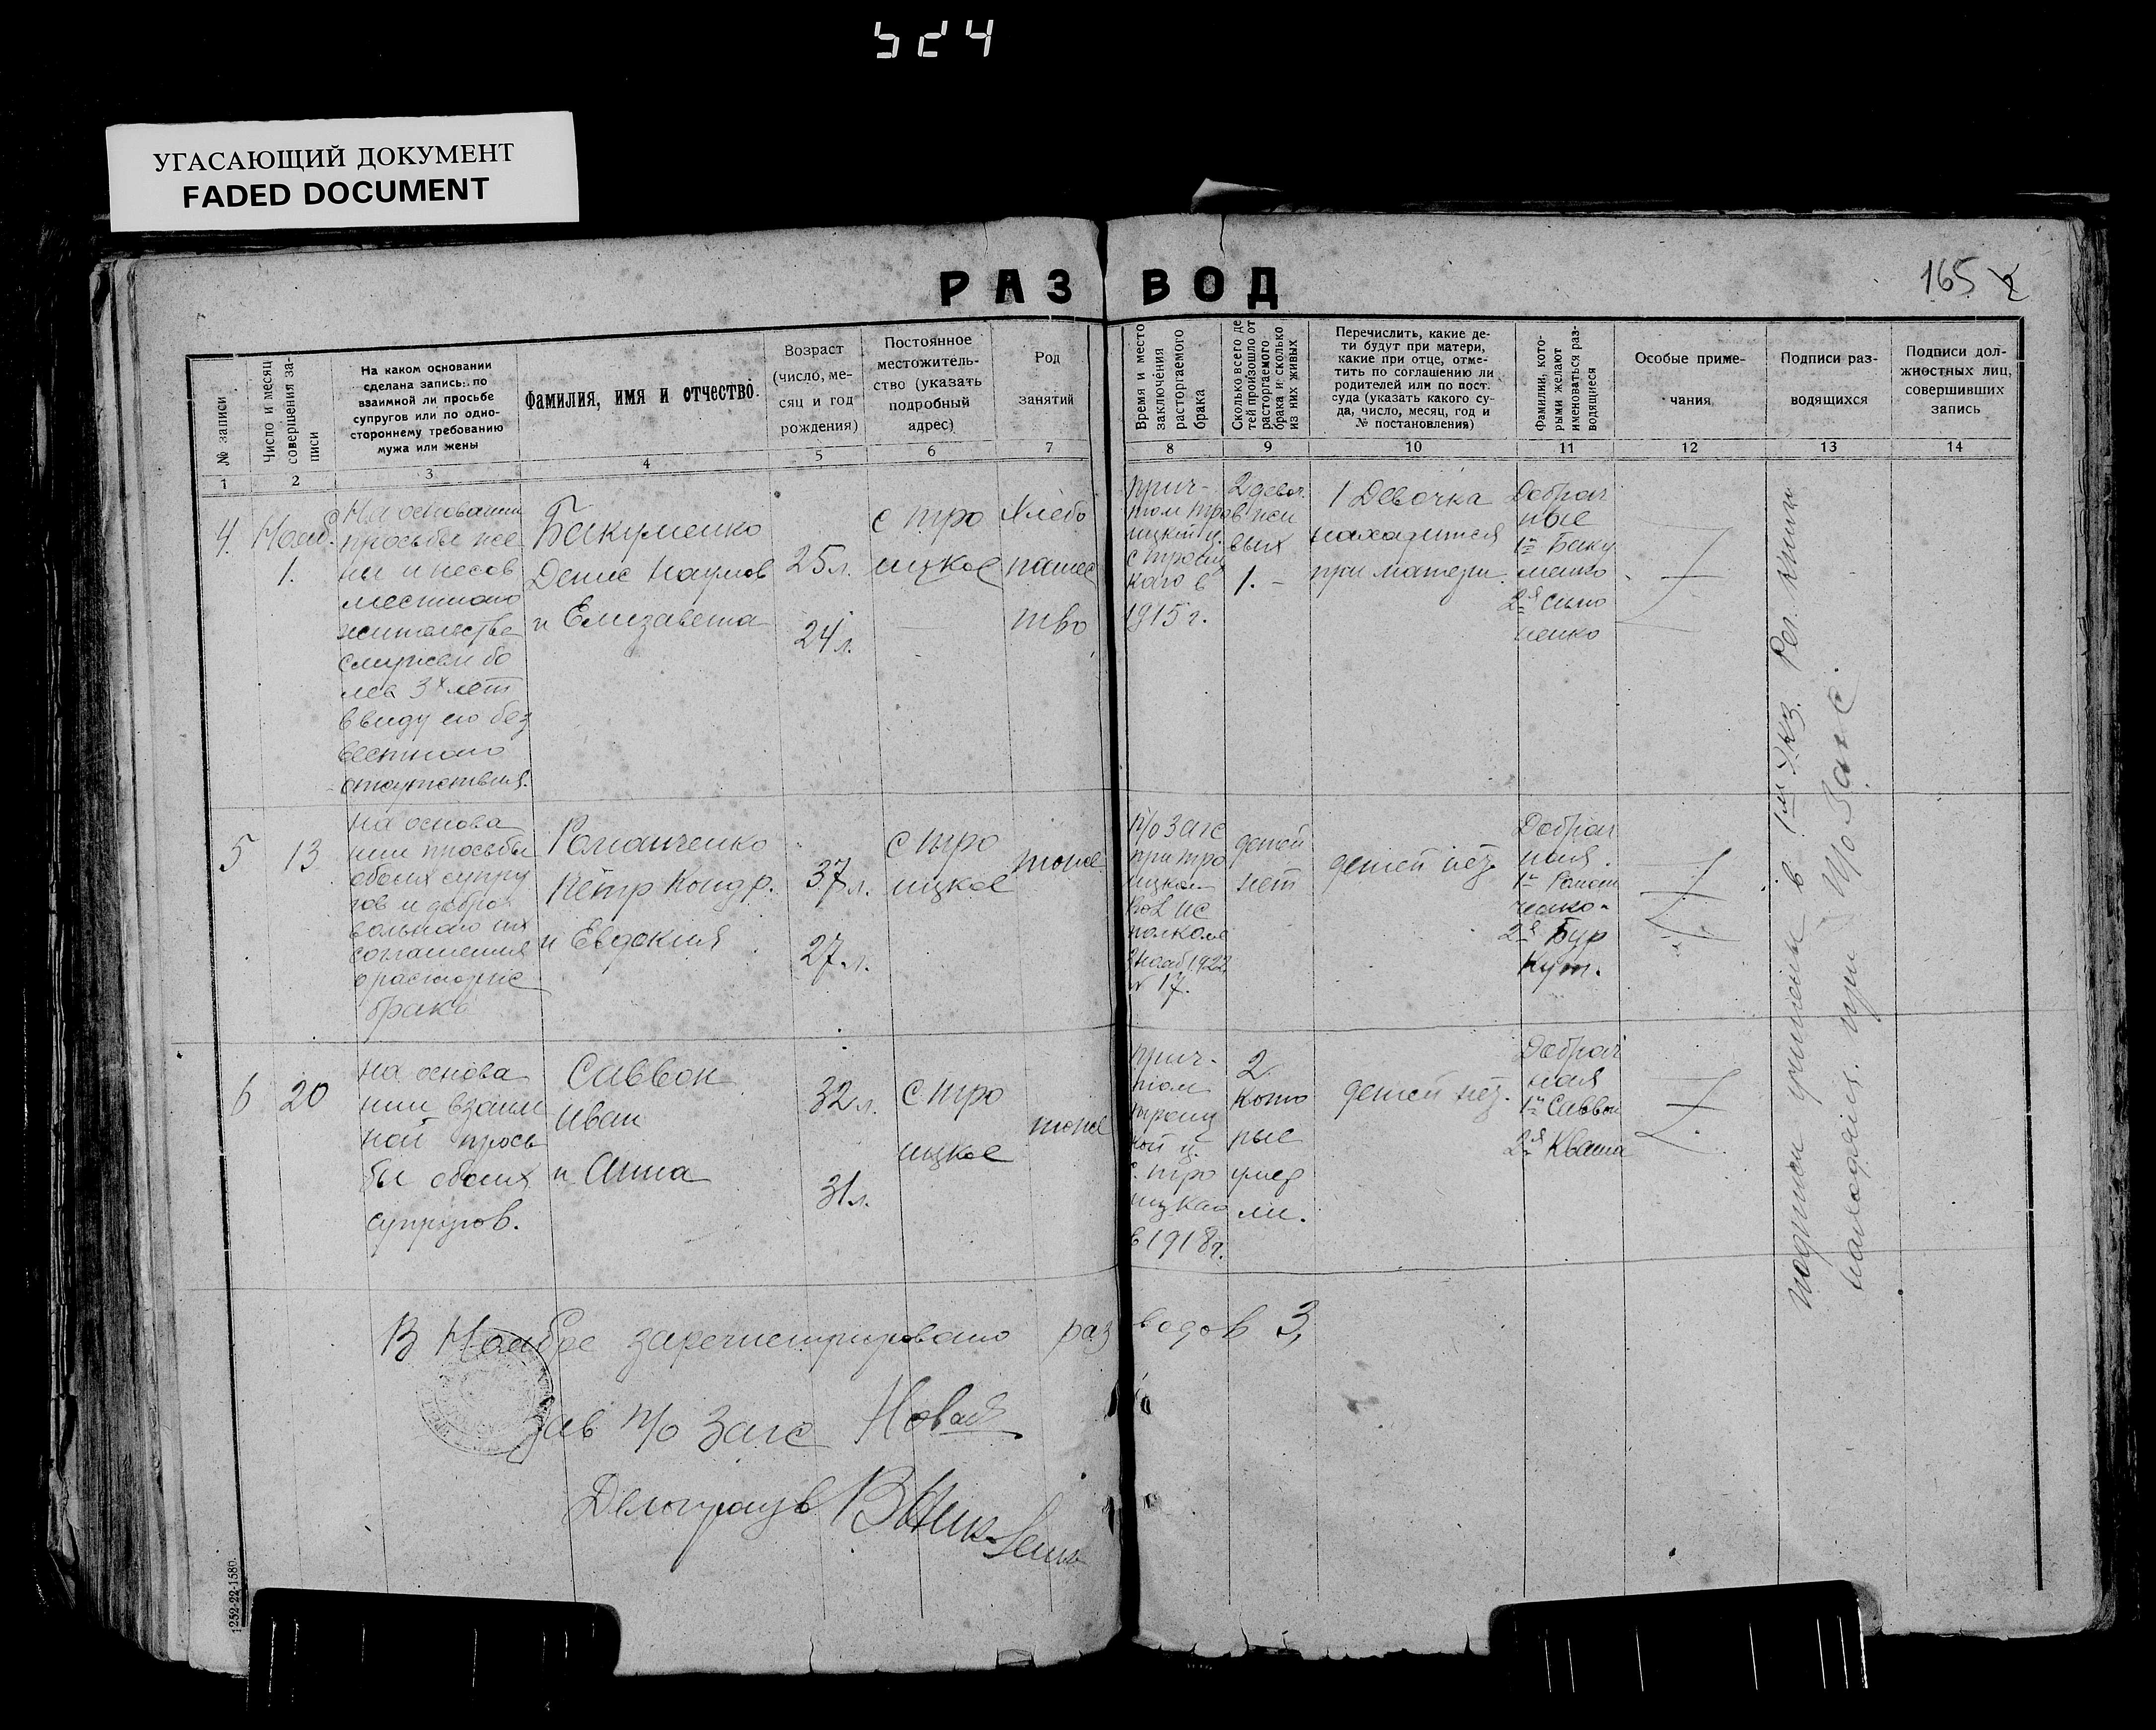 524
УГАСАЮЩИЙ ДОКУМЕНТ
FADED DOCUMENT
РАЗВОД
165
№ записи
Число и месяц
совершения за-
писи
На каком основании
сделана запись: по
взаимной ли просьбе
супругов или по одно-
стороннему требованию
мужа или жены
Фамилия, имя и отчество.
Возраст
(число, ме-
сяц и год
рождения)
Постоянное
местожитель-
ство (указать
подробный
адрес)
Род
занятий
Время и место
заключения
расторгаемого
брака
Сколько всего де
тей произошло от
расторгаемого
брака и сколько
из них живых
Перечислить, какие де-
ти будут при матери,
какие при отце, отме-
тить по соглашению ли
родителей или по пост.
суда (указать какого су-
да, число, месяц, год и
№ постановления)
Фамилии, кото-
рыми желают
именоваться раз-
водящиеся
Особые приме-
чания
Подписи раз-
водящихся
Подписи дол-
жностных лиц,
совершивших
запись
1 2 3 4 5 6 7 8 9 10 11 12 13 14
4
Нояб.
1.
На основании
просьбы же
ны и несов
местного
жительства
более 3х лет
ввиду его без
вестного
отсутствия.
Бакуменко
Денис Наумов
и Елизавета
25 л.
24 л.
с Тро
ицкое
Хлебо
паше
тво
прич-
том Тро
ицкой ц.
с Троиц
кого в
1915 г.
2 девоч.
в жи
вых
1.-
1 Девочка
находится
при матери.
Добрач
ные
1й Баку
менко
2я
ненко
5
13
на основа
нии просьбы
обоих супру
гов и добро
вольного их
соглашения
о расторже
брака
Романченко
Петр Кондр.
и Евдокия
37 л.
27 л.
с Тро
ицкое
тоже
п/о Загс
при Тро
ицком
Вол ис
полкоме
нояб 1922
№ 17.
детей
нет
детей нет
Добрач
ная.
1й Роман
ченко
2я Бур
кут.
6
20
на основа
нии взаим
ной прось
бы обоих
супругов.
Саввон
Иван
и Анна
32 л.
31 л.
с Тро
ицкое
тоже
прич-
том
Троиц
кой ц.
с. Тро
ицкаго
в 1918 г.
2
кото
рые
умер
ли.
детей нет.
Добрач
ная
1й Саввон
2я Кваша
подписи учинены в 1м экз. Рег. книги
находящ. при п/о Загс.
В Ноябре зарегистрировано разводов 3,
Зав п/о Загс
Делопроизв
1252-22-1580.